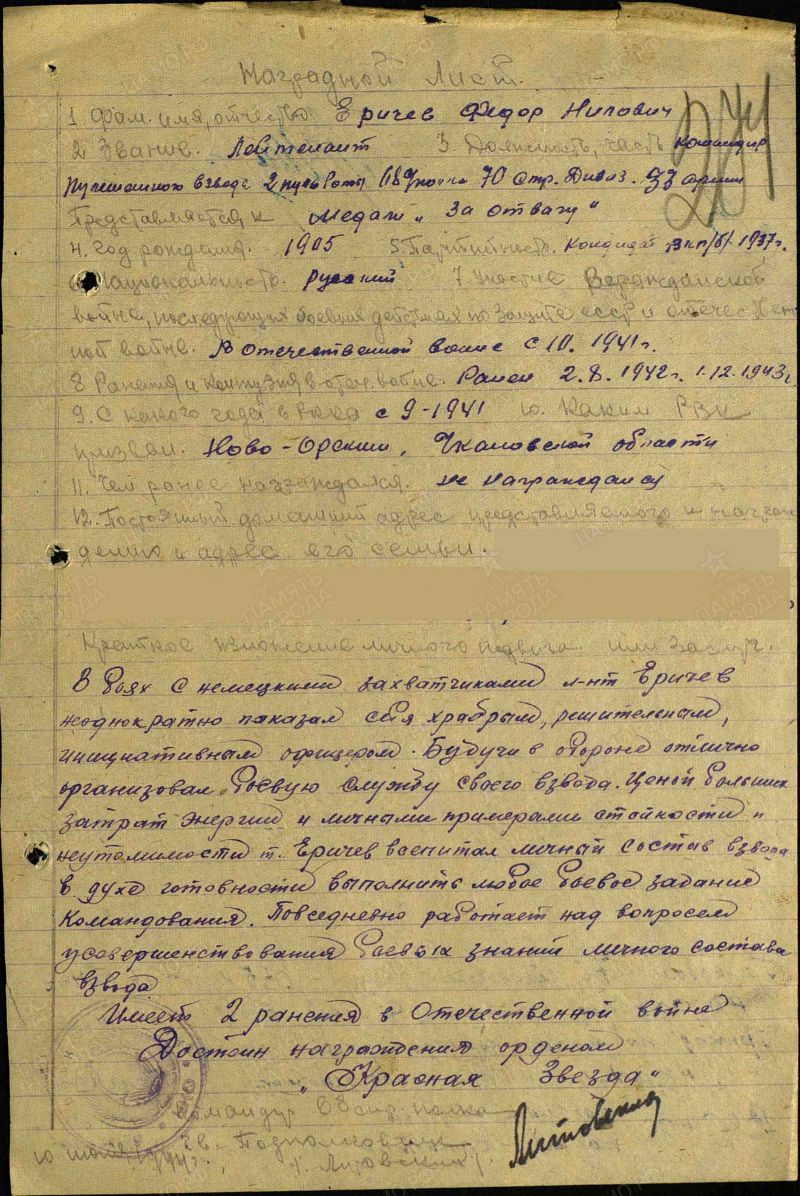 Наградной Лист.
1 Фам. имя, отчество Еричев Федор Нилович
2 Звание. Лейтенант 3. Должность, часть Командир
пулеметного взвода 2 пуль роты 68 полка 70 Стр. Дивиз. 33 армии
Представляется к медали „За отвагу"
4. год рождения. 1905 5 Партийность. Кандидат ВКП/б/ 1937г.
6 Национальность. русский 7 Участие в гражданской
войне, последующих боевых действиях по защите СССР и отечествен
ной войне. В Отечественной войне с 10. 1941г.
8 Ранения и контузия в отеч. войне. Ранен 2.8.1942г. 1.12.1943г
9. С какого года в РККА с 9-1941 10. Каким РВК
призван. Ново-Орским, Чкаловской области
11. Чем ранее награждался. не награждался
12. Постоянный домашний адрес представляемого к награж
дению и адрес его семьи.
Краткое изложение личного подвига или заслуг.
В боях с немецкими захватчиками л-нт Еричев
неоднократно показал себя храбрым, решительным,
инициативным офицером. Будучи в обороне отлично
организовал боевую службу своего взвода. Ценой больших
затрат энергии и личными примерами стойкости и
неутомимости т. Еричев воспитал личный состав взвода
в духе готовности выполнить любое боевое задание
Командования. Повседневно работает над вопросом
усовершенствования боевых знаний личного состава
взвода
Имеет 2 ранения в Отечественной войне
Достоин награждения орденом
„Красная Звезда"
Командир 68 стр. полка
гв. Подполковник
10 июля 1944г.